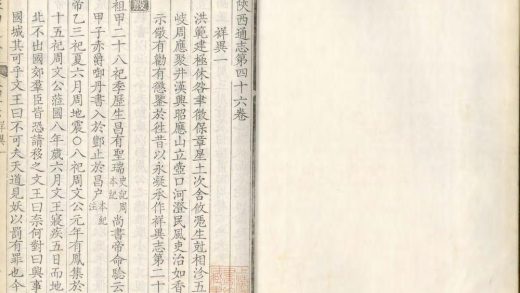 陝西通志第四十六卷
祥異一
洪範建極休咎聿徵保章星土次舍攸
岐周應聚井漢興昭應山立壺口河澄民風吏治如香
示儆有勸有懲鑒於往昔以永凝承作祥異志第二十
殷
祖甲二十八祀季歷生昌有聖瑞史記周本紀尚書帝命驗云
甲子赤爵銜丹書入於酆止於昌户本紀注
帝乙三祀夏六月周地震○八祀周文公元年有鳳集於
十五祀周文公蒞國八年歲六月文王寢疾五日而地
北不出國郊羣臣皆恐請移之文王曰奈何對曰興事
國城其可乎文王曰不可夫天道見妖以罰有罪也今
祥異一